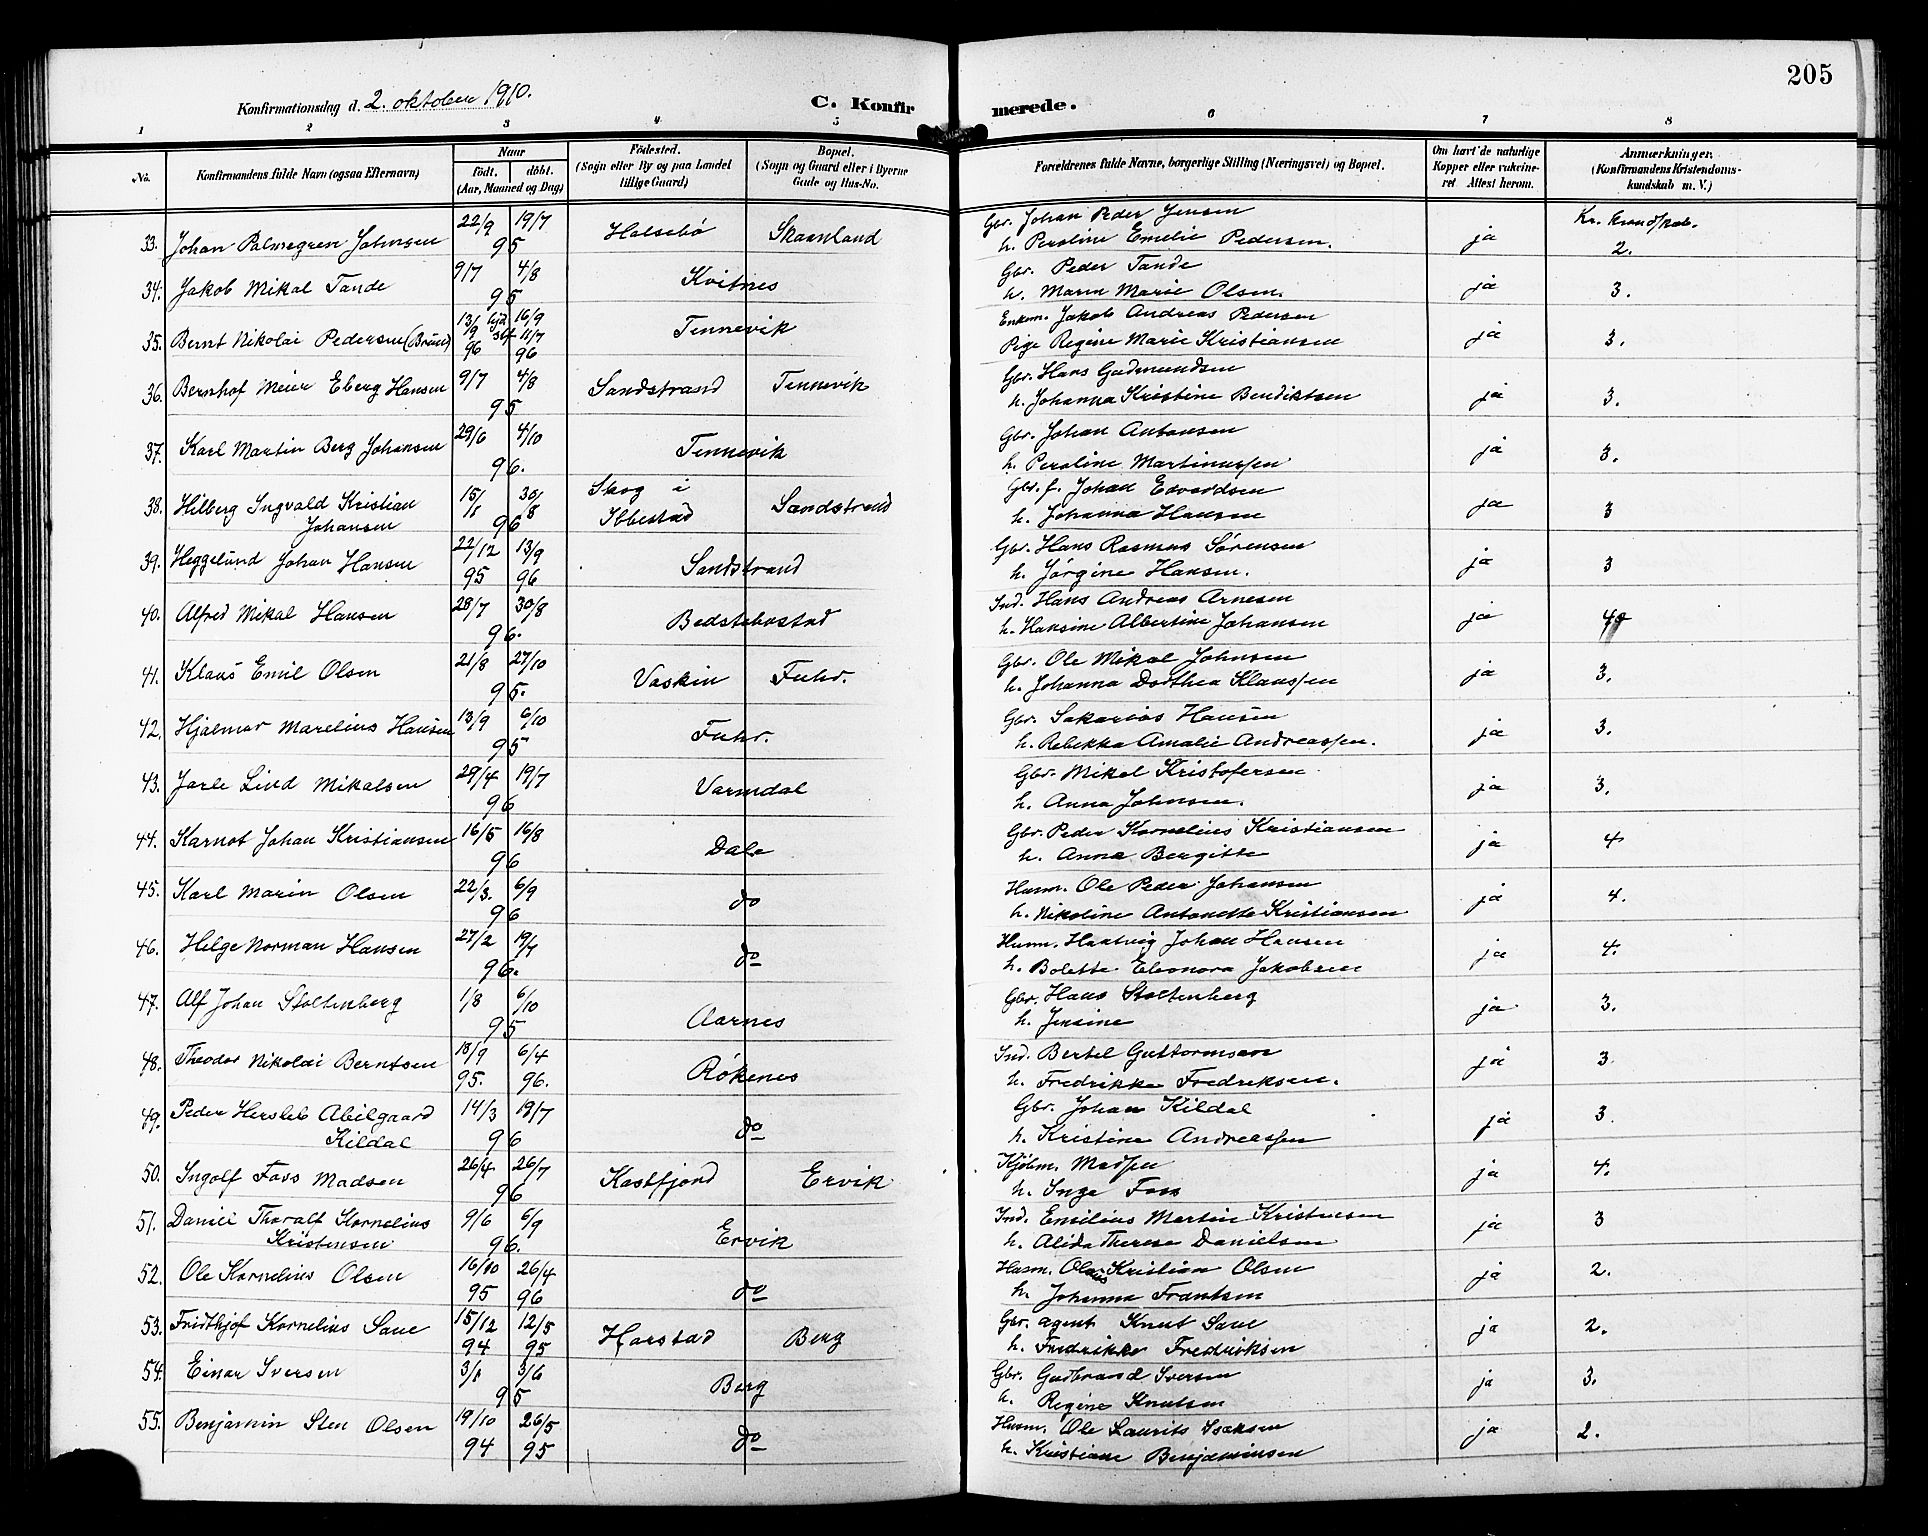 205
Konfirmationsdag d. 2. oktober 1910.
C. Konfirmerede.
1 2 3 4 5 6 7 8
No.
Konfirmandens fulde Navn (ogsaa Efternavn)
Naar
født. døbt.
(Aar, Maaned og Dag)
Fødested.
(Sogn eller By og paa Landet
tillige Gaard)
Bopæl.
(Sogn og Gaard eller i Byerne
Gade og Hus-No.
Forældrenes fulde Navne, borgerlige Stilling (Næringsvei) og Bopæl.
Om havt de naturlige
Kopper eller vaccine-
ret. Attest herom.
Anmærkninger.
(Konfirmandens Kristendoms-
kundskab m. V.)
33. Johan Palmegren Johnsen 22/9 19/7 95 Halsebø Skaanland Gbr. Johan Peder Jensen
h. Peroline Emelie Pedersen. ja Kr. kundskab. 2.
34. Jakob Mikal Tande 9/7 4/8 95 Kvitnes Gbr. Peder Tande
h. Maren Marie Olsen. ja 3.
35. Bernt Nikolai Pedersen (Bruun) 13/9 96 hjd. 16/9 stf. 11/7 96 Tennevik Enkem. Jakob Andreas Pedersen
Pige Regine Marie Kristiansen ja 3.
36. Bernhof Meier Eberg Hansen 9/7 4/8 95 Sandstrand Tennevik Gbr. Hans Gudmundsen
h. Johanna Kristine Bendiktsen ja 3.
37. Karl Martin Berg Johansen 29/6 4/10 96. Tennevik Gbr. Johan Antonsen
h. Peroline Martinussen ja 3.
38. Hilberg Ingvald Kristian
Johansen 15/1 30/8 96 Skog i
Ibbestad Sandstrand Gbr. f. Johan Edvardsen
h. Johanna Hansen ja 3
39. Heggelund Johan Hansen 22/12 95 13/9 96 Sandstrand Gbr. Hans Rasmus Sørensen
h. Jørgine Hansen. ja 3
40. Alfred Mikal Hansen 28/7 30/8 96. Bedstebostad Ind. Hans Andreas Arnesen
h. Hansine Albertine Johansen ja 4
41. Klaus Emil Olsen 21/8 27/10 95. Vaskin Fuhr. Gbr. Ole Mikal Johnsen
h. Johanna Dorthea Klaussen ja 3.
42. Hjalmar Marelius Hansen 13/9 6/10 95 Fuhr. Gbr. Sakarias Hansen
h. Rebekka Amalie Andreassen. ja 3.
43. Jarle Lind Mikalsen 29/4 19/7 96 Varmdal Gbr. Mikal Kristofersen
h. Anna Johnsen. ja 3.
44. Karnot Johan Kristiansen 16/5 16/8 96 Dale Gbr. Peder Kornelius Kristiansen
h. Anna Bergitte ja 4
45. Karl Marin Olsen 22/3. 6/9 96 do Husm. Ole Peder Johansen
h. Nikoline Antonette Kristiansen ja 4.
46. Helge Norman Hansen 27/2 19/7 96. do Husm. Hartvig Johan Hansen
h. Bolette Eleonora Jakobsen ja 4.
47. Alf Johan Stoltenberg 1/8 6/10 95 Aarnes Gbr. Hans Stoltenberg
h. Jensine ja 3.
48. Theodor Nikolai Berntsen 18/9 95. 6/4 96. Røkenes Ind. Bertel Guttormsen
h. Fredrikke Fredriksen. ja 3.
49. Peder Hersleb Abilgaard
Kildal 14/3 19/7 96 do Gbr. Johan Kildal
h. Kristine Andreassen ja 3.
50. Ingolf Foss Madsen 26/4 26/7 96 Kastfjord Ervik Kjøbm. Madsen
h. Inga Foss ja 4.
51. Daniel Thoralf Kornelius
Kristensen 9/6 6/9 96. Ervik Ind. Emilius Martin Kristensen
h. Alida Therese Danielsen ja 3
52. Ole Kornelius Olsen 16/10 95 26/4 96 do Husm. Olaus Kristian Olsen
h. Johanna Frantsen ja 2.
53. Fridthjof Kornelius Saue 15/12 94 12/5 95 Harstad Berg Gbr. agent Knut Saue
h. Fredrikke Fredriksen ja 2.
54. Einar Iversen 3/1 3/6 95 Berg Gbr. Gudbrand Iversen
h. Regine Knutsen ja 3.
55. Benjamin Sten Olsen 19/10 94 26/5 95 do Husm. Ole Laurits Isaksen
h. Kristiane Benjaminsen ja 2.